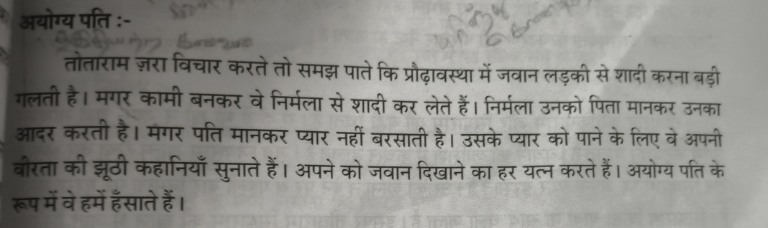 अयोग्य पति :-
तोताराम ज़रा विचार करते तो समझ पाते कि प्रौढ़ावस्था में जवान लड़की से शादी करना बड़ी
गलती है। मगर कामी बनकर वे निर्मला से शादी कर लेते हैं। निर्मला उनको पिता मानकर उनका
आदर करती है। मगर पति मानकर प्यार नहीं बरसाती है। उसके प्यार को पाने के लिए वे अपनी
वीरता की झूठी कहानियाँ सुनाते हैं। अपने को जवान दिखाने का हर यत्न करते हैं। अयोग्य पति के
रूप में वे हमें हँसाते हैं।